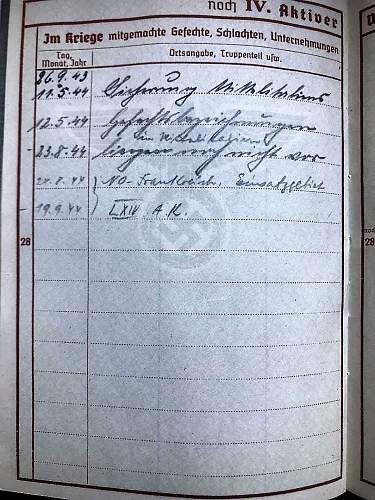 noch IV. Aktiver
Im Kriege mitgemachte Gefechte, Schlachten, Unternehmungen
Tag, Monat, Jahr
Ortsangabe, Truppenteil usw.
26.9.43
11.5.44 Sicherung Mittelitaliens
12.5.44 Gefechtsbezeichnungen
in
23.8.44 liegen noch nicht vor
24.8.44 NO-Frankreich, Einsatzgebiet
19.9.44 LXIV A.K.
28